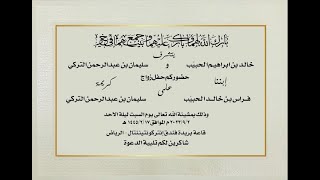 بارك الله لهما وبارك عليهما وجمع بينهما في خير
يتشرف
خالد بن ابراهيم الحبيب و سليمان بن عبدالرحمن التركي
حضوركم حفل زواج
إبننا كريمة
فراس بن خالد الحبيب على سليمان بن عبدالرحمن التركي
وذلك بمشيئة الله تعالى يوم السبت ليلة الاحد
٢٠٢٣/٩/٢ م الموافق ١٤٤٥/٢/١٧ هـ
قاعة بريدة فندق إنتركونتيننتال - الرياض
شاكرين لكم تلبية الدعوة